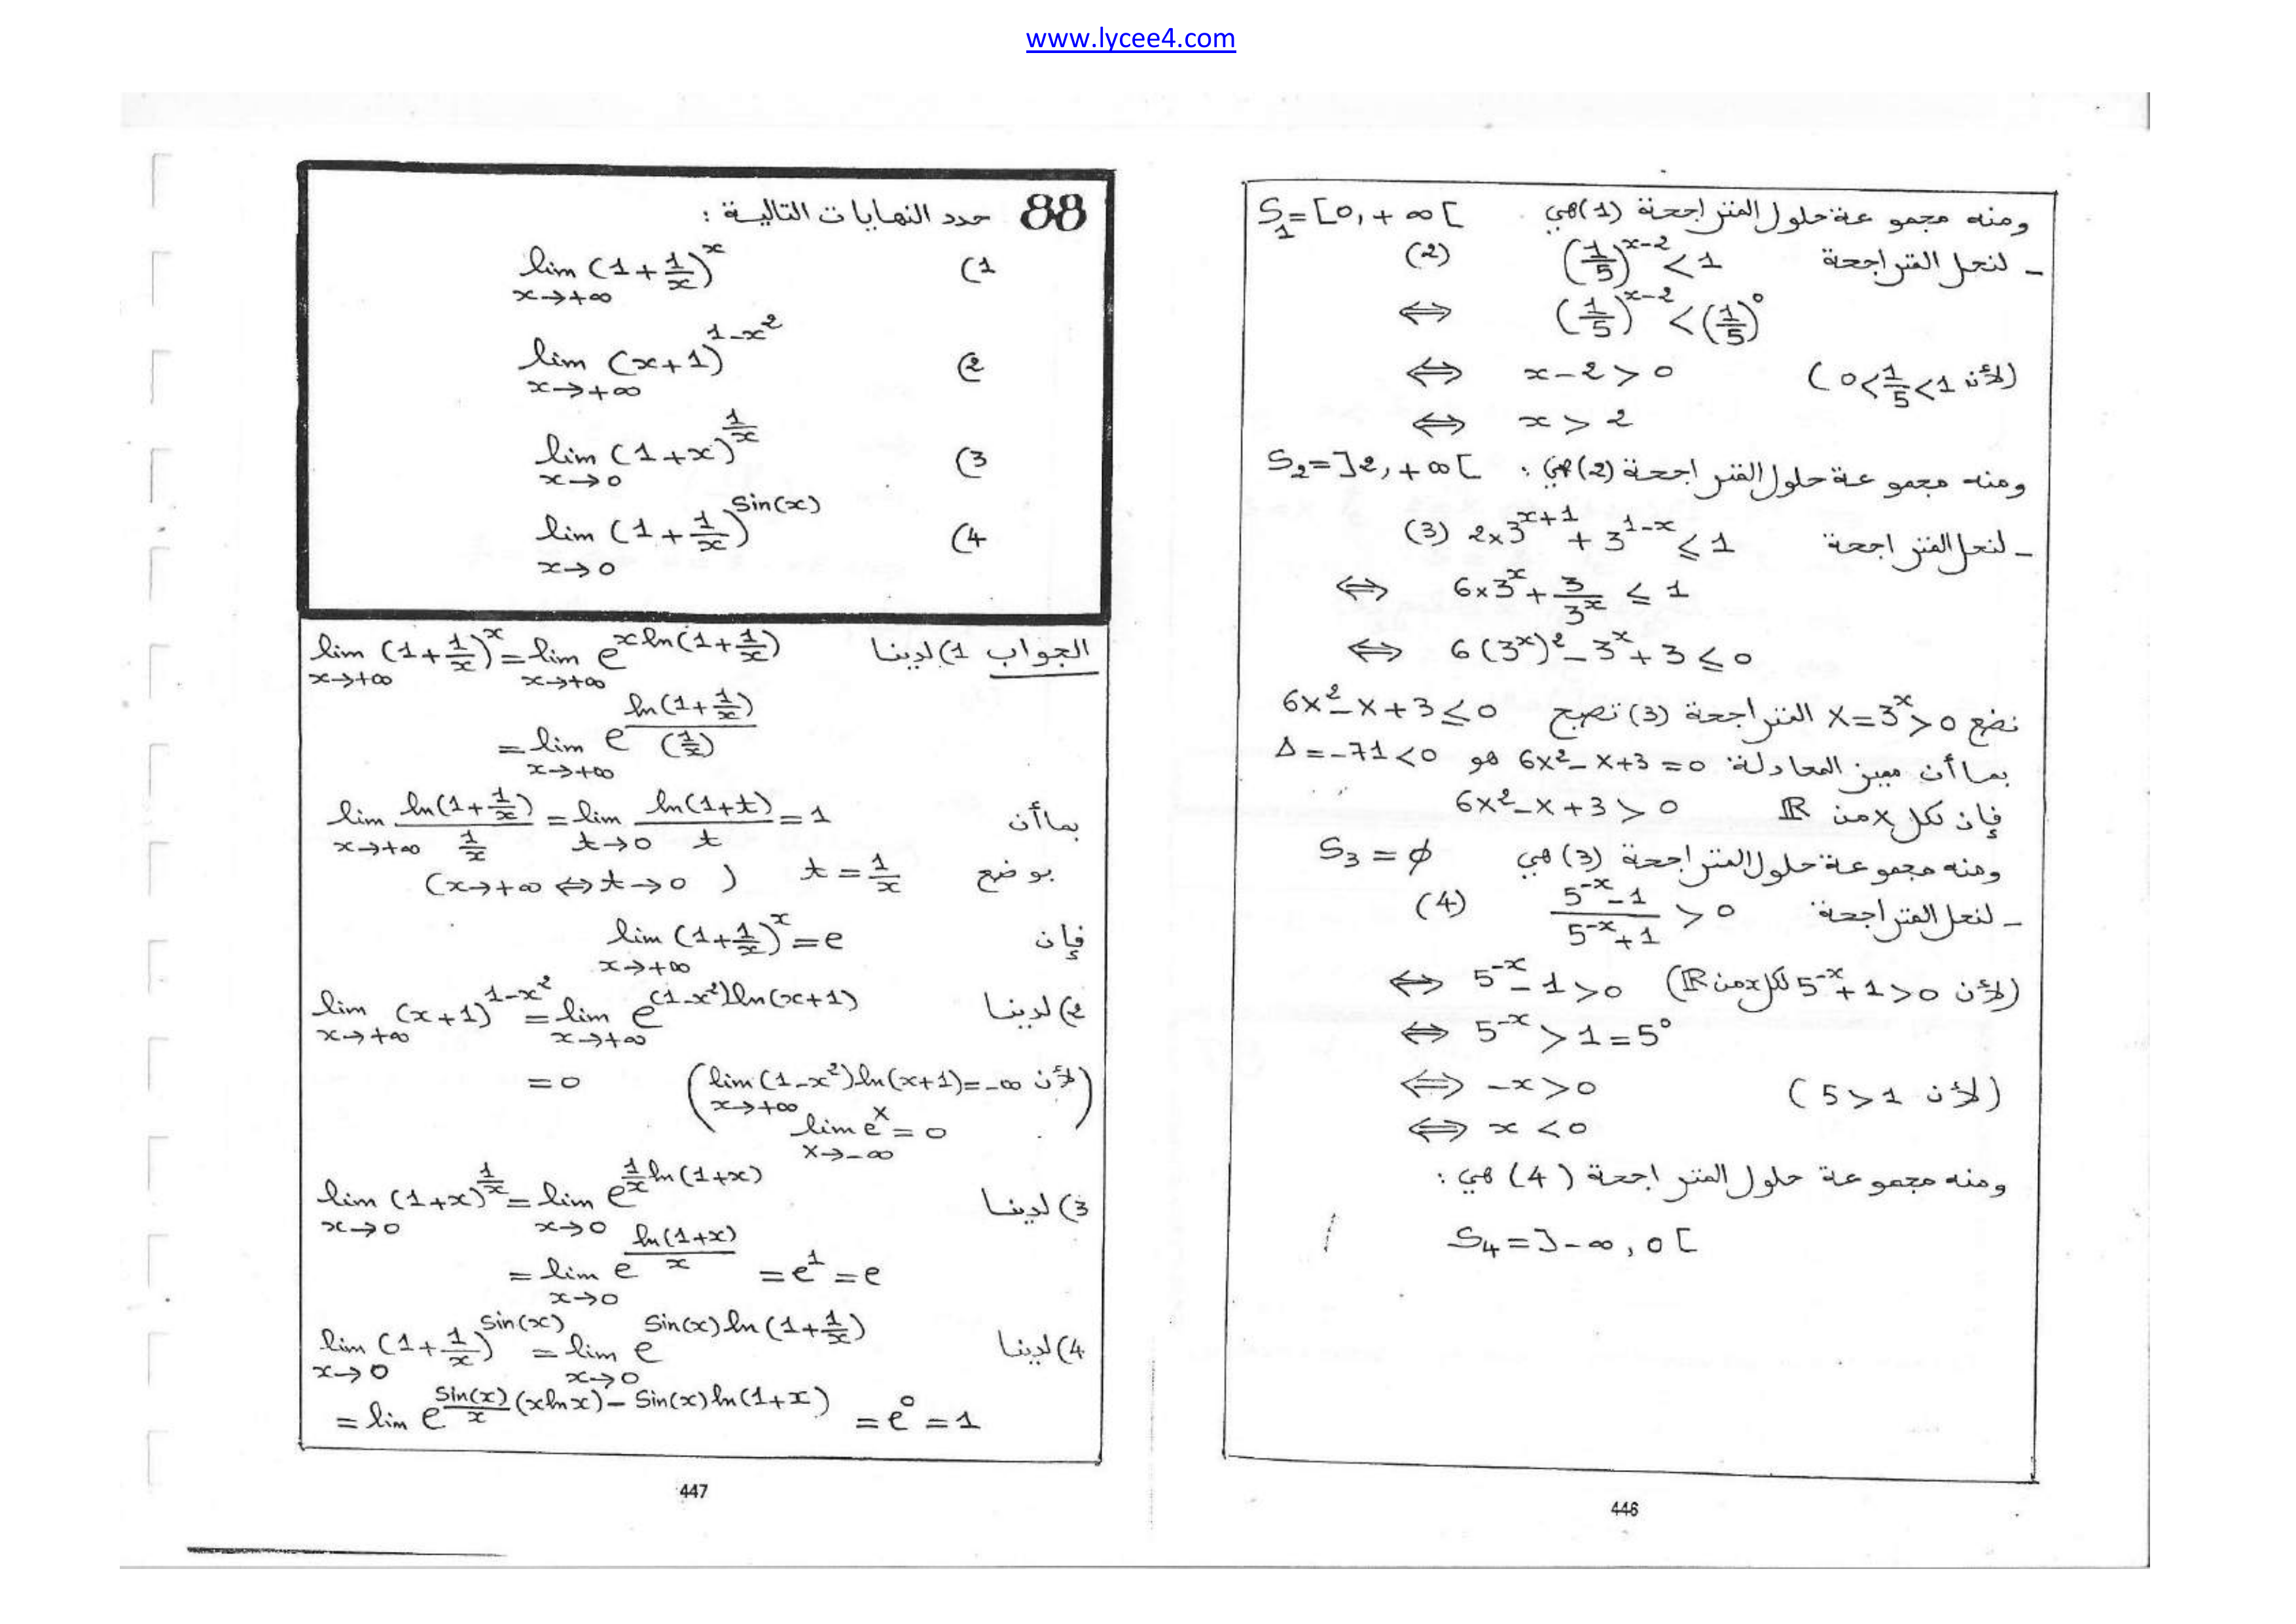 www.lycee4.com
ومنه مجموعة حلول المتراجحة (1) هي S₁ = [0, +∞[
- لنحل المتراجحة (1/5)^(x-2) < 1 (2)
⇔ (1/5)^(x-2) < (1/5)^0
⇔ x-2 > 0 (لأن 0 < 1/5 < 1)
⇔ x > 2
ومنه مجموعة حلول المتراجحة (2) هي : S₂ = ]2, +∞[
- لنحل المتراجحة (3) 2×3^(x+1) + 3^(1-x) ≤ 1
⇔ 6×3^x + 3/3^x ≤ 1
⇔ 6(3^x)² - 3^x + 3 ≤ 0
نضع X = 3^x > 0 المتراجحة (3) تصبح 6X² - X + 3 ≤ 0
بما أن مميز المعادلة: 6X² - X + 3 = 0 هو Δ = -71 < 0
فإن لكل X من ℝ 6X² - X + 3 > 0
ومنه مجموعة حلول المتراجحة (3) هي S₃ = ∅
- لنحل المتراجحة (5^(-x) - 1)/(5^(-x) + 1) > 0 (4)
⇔ 5^(-x) - 1 > 0 (لأن 5^(-x) + 1 > 0 لكل x من ℝ)
⇔ 5^(-x) > 1 = 5^0
⇔ -x > 0 (لأن 5 > 1)
⇔ x < 0
ومنه مجموعة حلول المتراجحة (4) هي :
S₄ = ]-∞, 0[
446
88 حدد النهايات التالية :
1) lim_(x→+∞) (1 + 1/x)^x
2) lim_(x→+∞) (x+1)^(1-x²)
3) lim_(x→0) (1+x)^(1/x)
4) lim_(x→0) (1 + 1/x)^(Sin(x))
الجواب 1) لدينا lim_(x→+∞) (1 + 1/x)^x = lim_(x→+∞) e^(x ln(1 + 1/x))
= lim_(x→+∞) e^(ln(1 + 1/x)/(1/x))
بما أن lim_(x→+∞) ln(1 + 1/x)/(1/x) = lim_(t→0) ln(1+t)/t = 1
بوضع t = 1/x (x→+∞ ⇔ t→0)
فإن lim_(x→+∞) (1 + 1/x)^x = e
2) لدينا lim_(x→+∞) (x+1)^(1-x²) = lim_(x→+∞) e^((1-x²)ln(x+1))
= 0 (لأن lim_(x→+∞) (1-x²)ln(x+1) = -∞
lim_(X→-∞) e^X = 0)
3) لدينا lim_(x→0) (1+x)^(1/x) = lim_(x→0) e^(1/x ln(1+x))
= lim_(x→0) e^(ln(1+x)/x) = e^1 = e
4) لدينا lim_(x→0) (1 + 1/x)^(Sin(x)) = lim_(x→0) e^(Sin(x) ln(1 + 1/x))
= lim e^(Sin(x)/x (x ln x) - Sin(x) ln(1+x)) = e^0 = 1
447